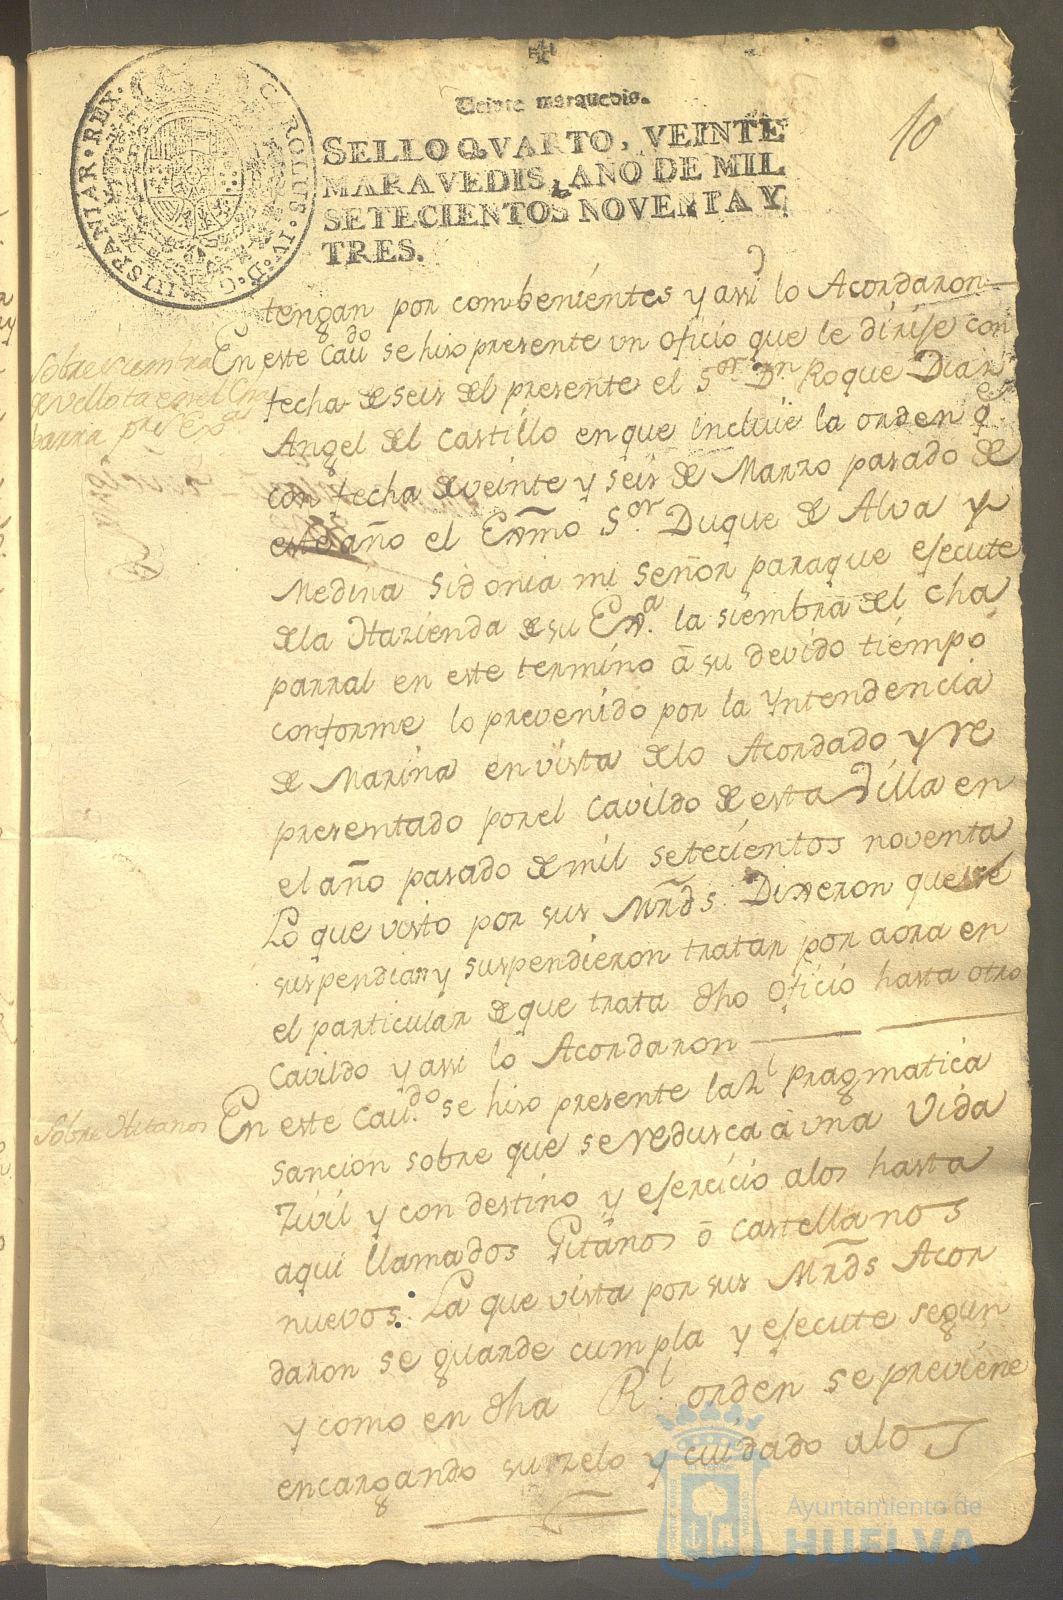 Veinte marauedis.
10
CAROLUS·IV·D·G·HISPANIAR·REX·
SELLO QVARTO, VEINTE
MARAVEDIS, AÑO DE MIL
SETECIENTOS NOVENTA Y
TRES.
tengan por combenientes y assi lo Acordaron
Sobre siembra
de vellota en el Cha
parral
En este Cavdo se hiso presente un oficio que le dirije con
fecha de seis del presente el Sor Dn Roque Diaz
Angel del Castillo en que incluie la orden q.e
con fecha de veinte y seis de Marzo pasado de
este año el Exmo Sor Duque de Alva y
Medina Sidonia mi Señor para que ejecute
de la Hazienda de su Exa. la siembra del Cha
parral en este termino â su devido tiempo
conforme lo prevenido por la Yntendencia
de Marina en vista de lo Acordado y re
presentado por el Cavildo de esta Villa en
el año pasado de mil setecientos noventa
Lo que visto por sus Mrds. Dixeron que se
suspendian y suspendieron tratar por aora en
el particular de que trata dho oficio hasta otro
Cavildo y assi lo Acordaron
Sobre Hitanos
En este Cavdo. se hiso presente la Rl pragmatica
sancion sobre que se redusca â una Vida
Zivil y con destino y ejercicio a los hasta
aqui llamados Gitanos ô castellanos
nuevos: La que vista por sus Mrds Acor
daron se guarde cumpla y ejecute segun
y como en dha Rl. orden se previene
encargando su zelo y cuidado a los
Ayuntamiento de
HUELVA